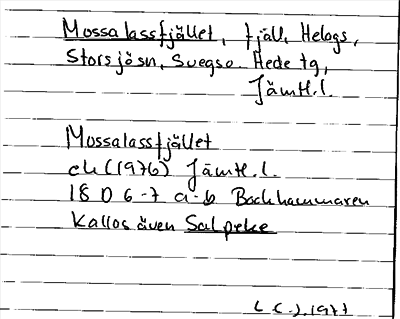 Mossalassfjället, fjäll, Helags,
Storsjösn, Svegso. Hede tg,
Jämtl.l.
Mossalassfjället
ek (1976) Jämtl.l.
18 D 6-7 a-b Backhammaren
Kallas även Salpeke
1977